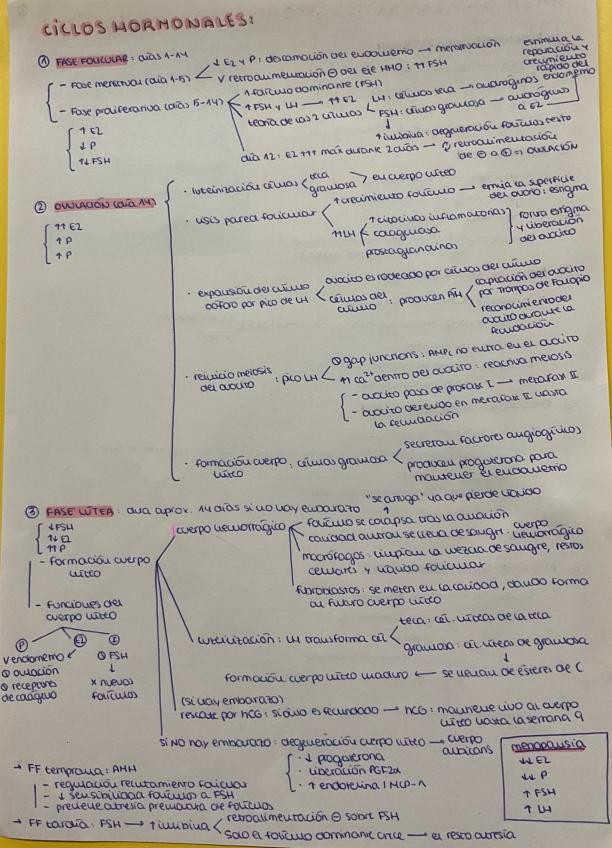 CICLOS HORMONALES:
① FASE FOLICULAR: días 1-14
- Fase menstrual (día 1-5)
↓ E2 y P: descamación del endometrio → menstruación
retroalimentación ⊖ del eje HHO: ↑↑ FSH
- Fase proliferativa (días 5-14)
1 folículo dominante (FSH)
↑ FSH y LH → ↑↑ E2
teoría de las 2 células
LH: células teca → andrógenos
FSH: células granulosa → andrógenos a E2
estimula la reparación y crecimiento rápido del endometrio
↑ inhibina: degeneración folículos resto
día 12: E2 ↑↑↑ máx durante 2 días → retroalimentación
de ⊖ a ⊕ => OVULACIÓN
↑ E2
↓ P
↑↓ FSH
② OVULACIÓN (día 14)
↑↑ E2
↑ P
↑ P
· luteinización células
teca
granulosa
en cuerpo lúteo
· lisis pared folicular
↑ crecimiento folículo → empuja la superficie
del ovario: estigma
↑ LH
↑ citocinas inflamatorias
colagenasa
prostaglandinas
forma estigma
y liberación
del ovocito
· expansión del cúmulo
oóforo por pico de LH
ovocito es rodeado por células del cúmulo
células del cúmulo : producen AH
captación del ovocito
por trompas de Falopio
reconocimiento del
ovocito durante la
fecundación
· reinicio meiosis
del ovocito : pico LH
⊖ gap junctions: AMPc no entra en el ovocito
↑↑ Ca2+ dentro del ovocito: reactiva meiosis
- ovocito pasa de profase I → metafase II
- ovocito detenido en metafase II hasta
la fecundación
· formación cuerpo lúteo : células granulosa
secretan factores angiogénicos
producen progesterona para
mantener el endometrio
③ FASE LÚTEA: dura aprox. 14 días si no hay embarazo
↓ FSH
↑↓ E2
↑↑ P
- formación cuerpo
lúteo
- funciones del
cuerpo lúteo
P
endometrio
⊖ ovulación
⊖ receptores
E2
I
⊖ FSH
↓
x nuevos
folículos
cuerpo hemorrágico
"se arruga" ya que pierde líquido
folículo se colapsa tras la ovulación
cavidad antral se llena de sangre: cuerpo
hemorrágico
macrófagos: limpian la mezcla de sangre, restos
celulares y líquido folicular
fibroblastos: se meten en la cavidad, dando forma
al futuro cuerpo lúteo
luteinización: LH transforma cél
teca: cél. lúteas de la teca
granulosa: cél. lúteas de granulosa
↓
formación cuerpo lúteo maduro ← se llenan de ésteres de C
(si hay embarazo)
rescate por hCG: si óvulo es fecundado → hCG: mantiene vivo al cuerpo
lúteo hasta la semana 9
si NO hay embarazo: degeneración cuerpo lúteo → cuerpo
albicans
· ↓ progesterona
· liberación PGF2α
· ↑ endotelina 1 MCP-1
menopausia
↓↓ E2
↓↓ P
↑ FSH
↑ LH
→ FF temprana: AMH
- regulación reclutamiento folículos
- ↓ sensibilidad folículos a FSH
- previene atresia prematura de folículos
→ FF tardía: FSH → ↑ inhibina
retroalimentación ⊖ sobre FSH
Solo el folículo dominante crece → el resto atresia